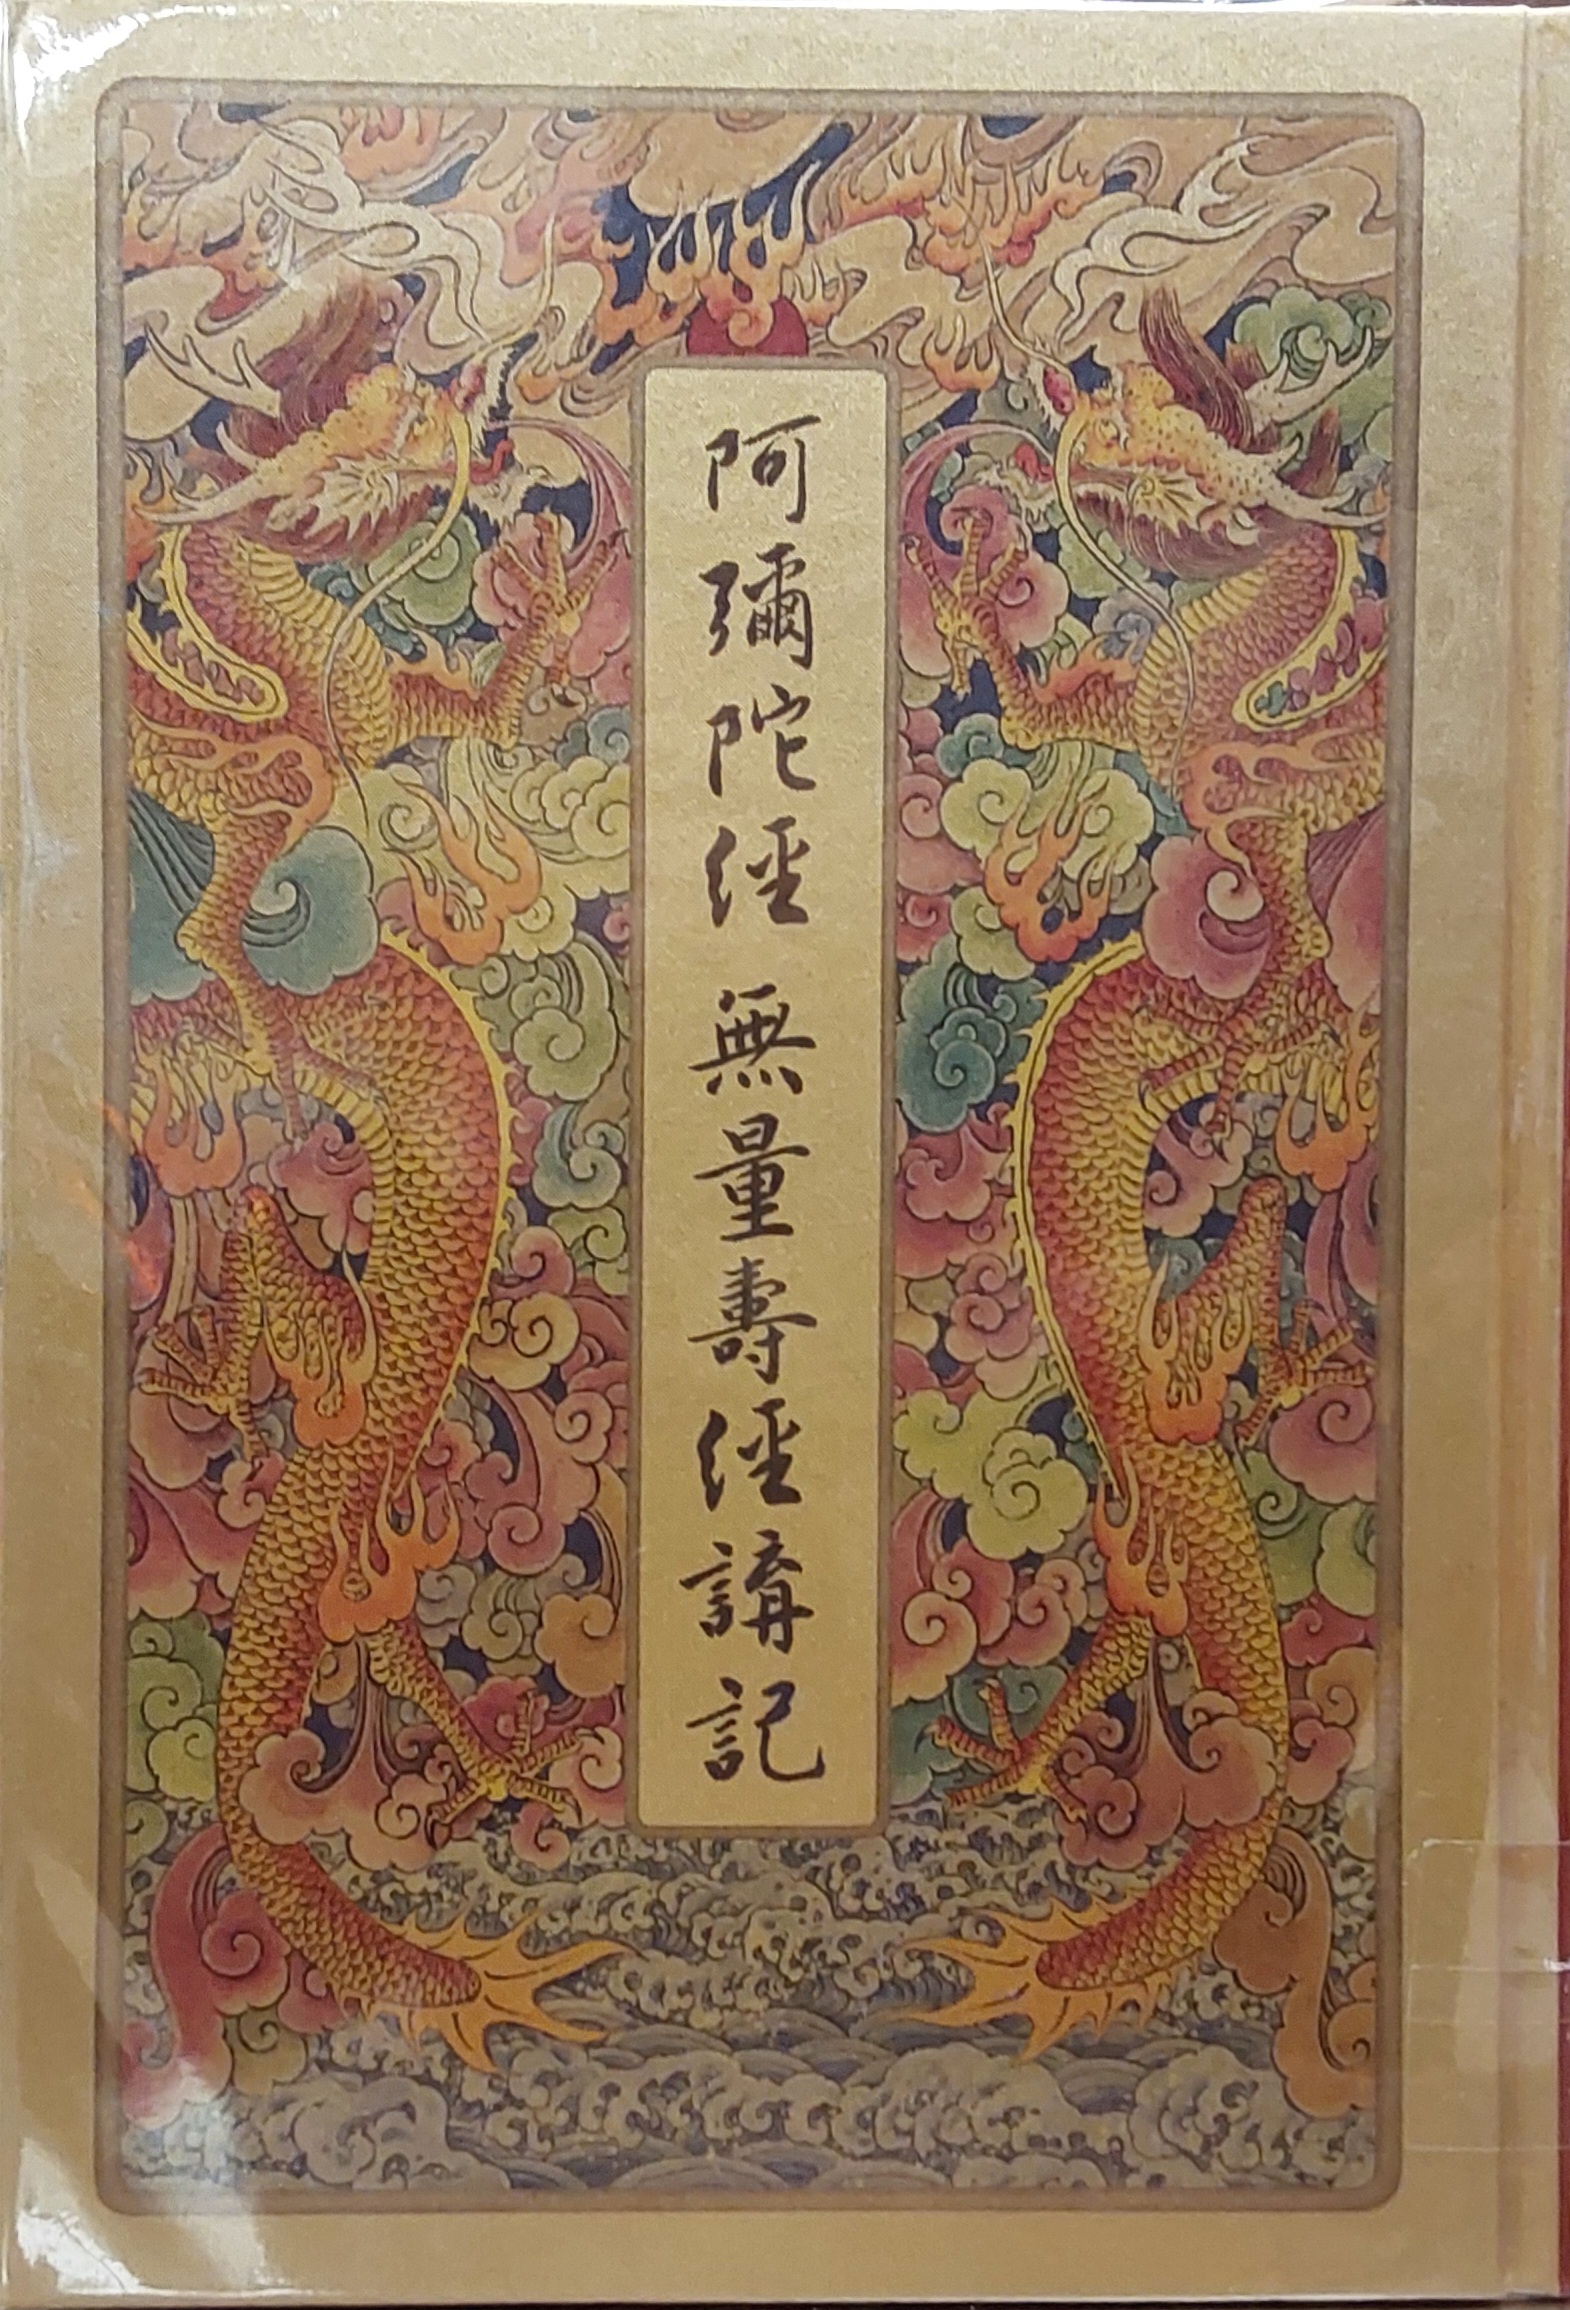 阿彌陀經 無量壽經講記